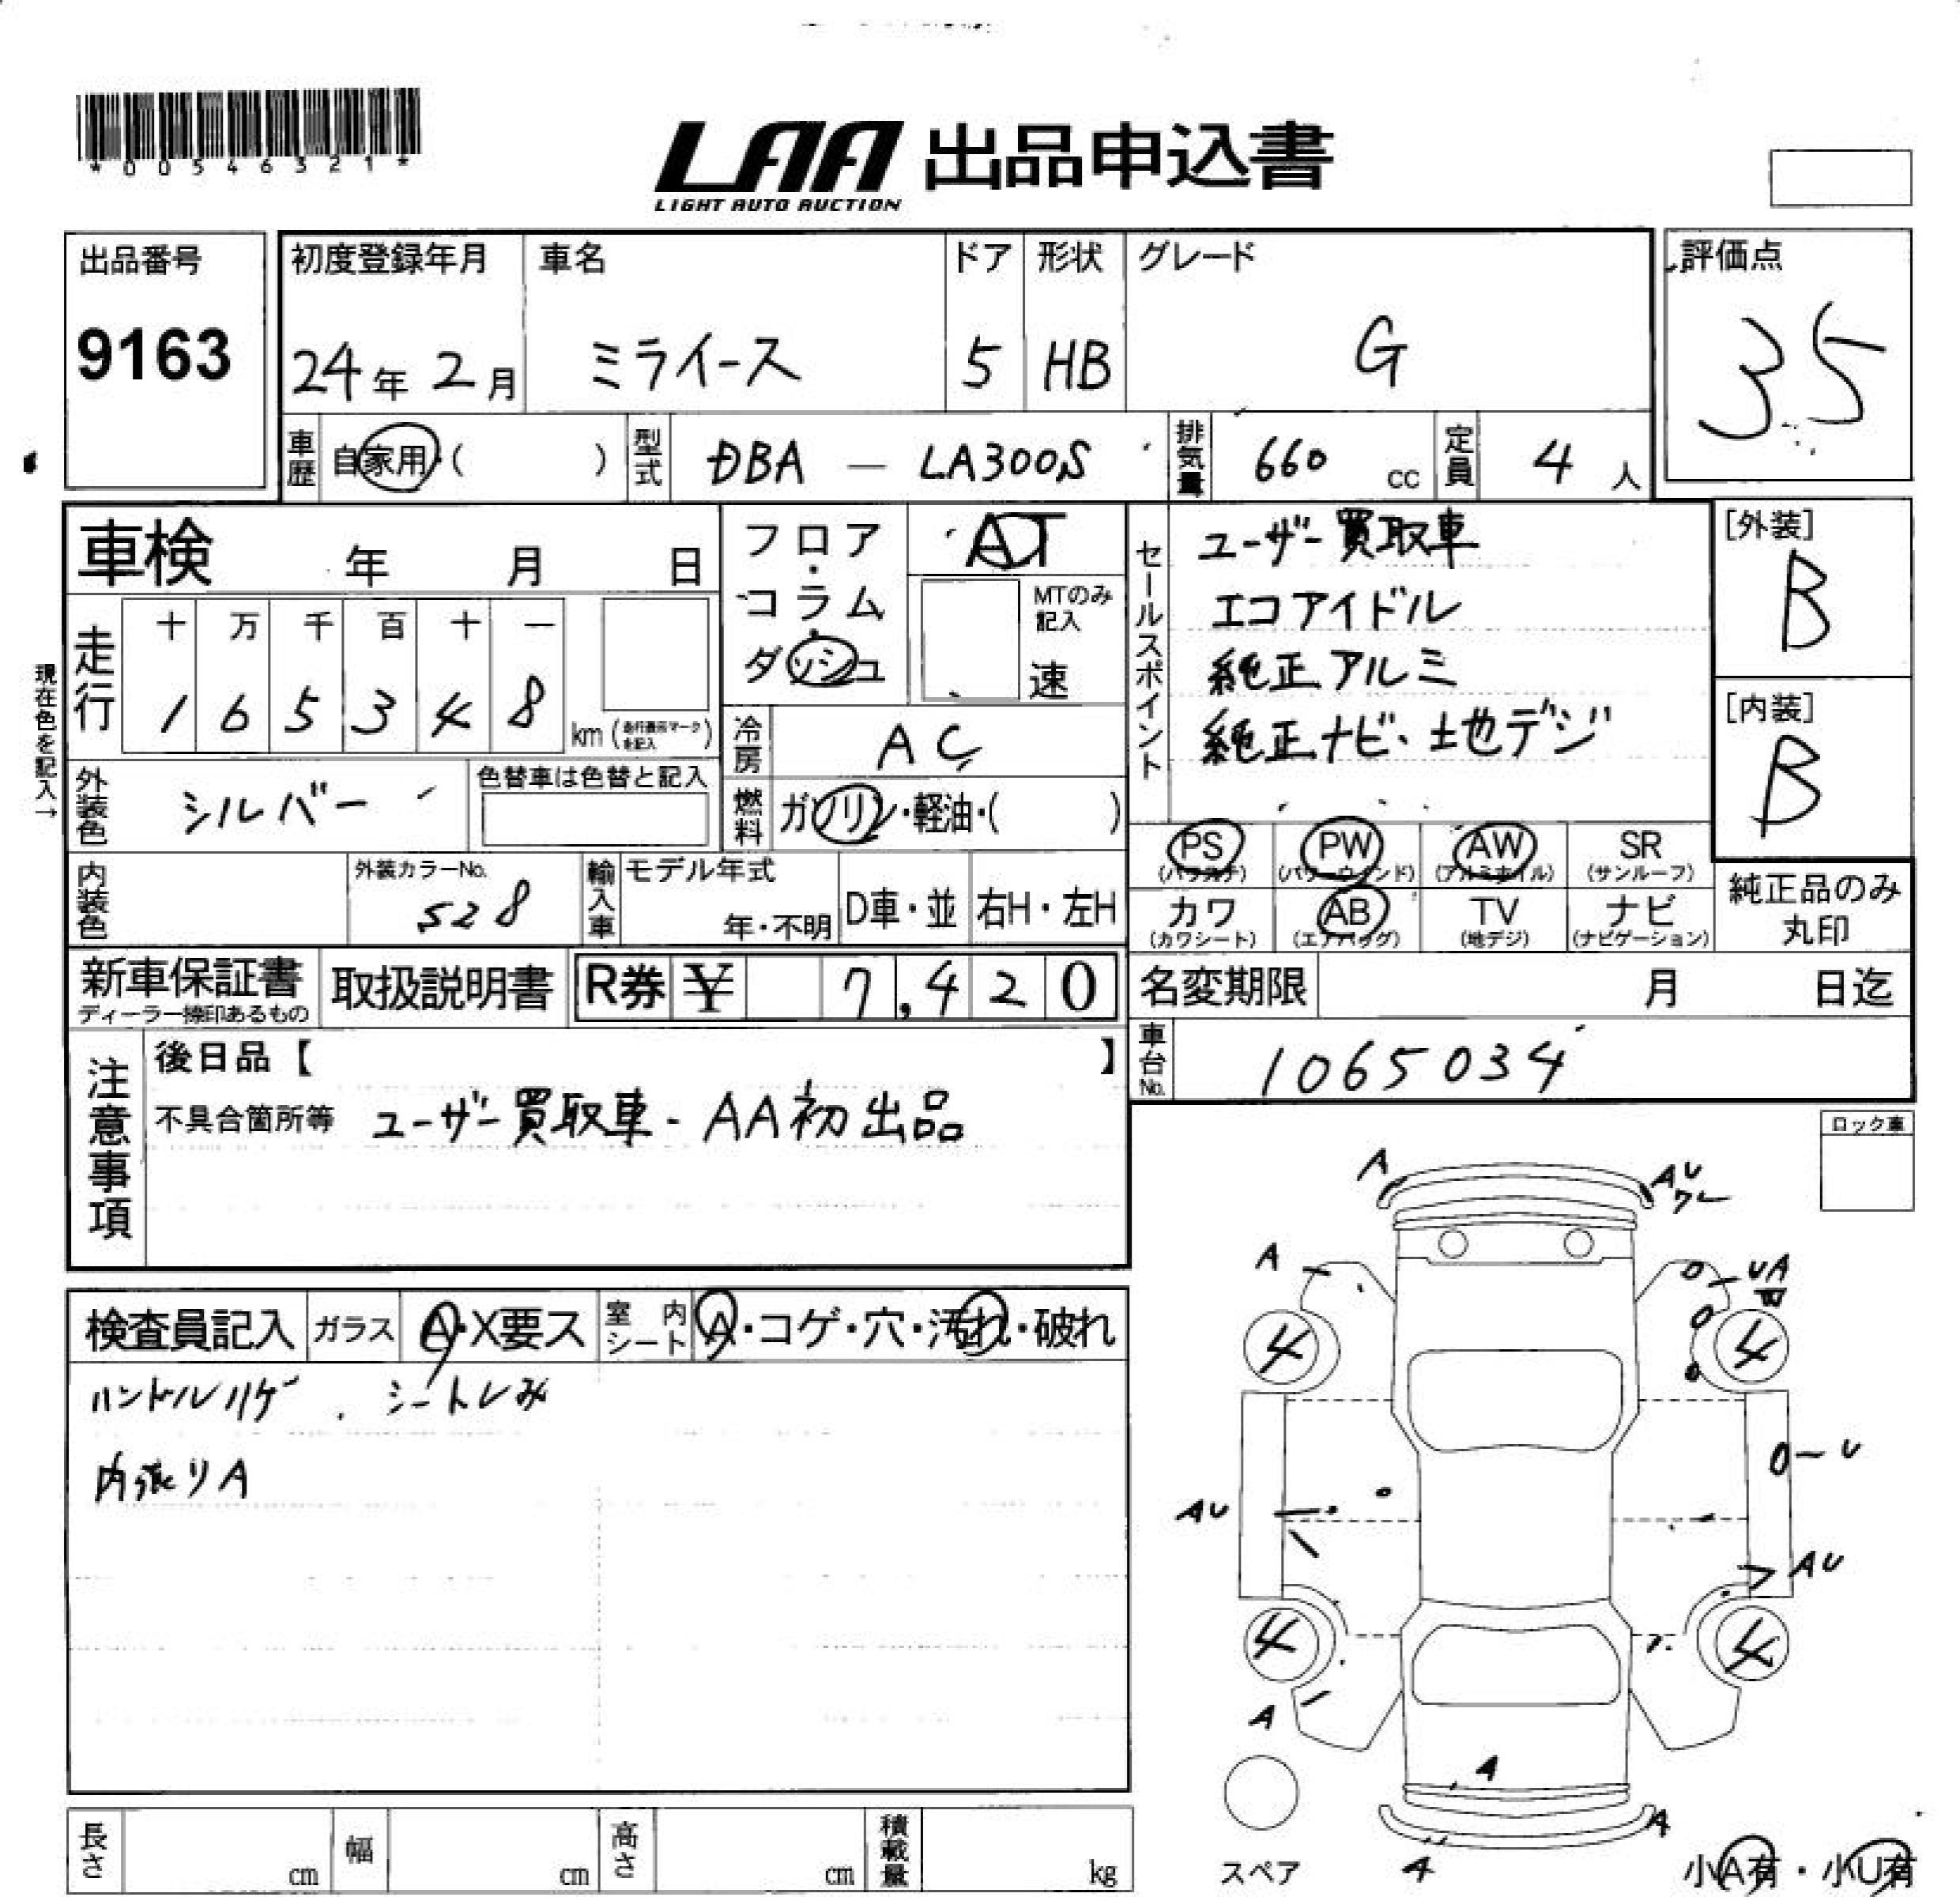 *00546321*
LAA 出品申込書
LIGHT AUTO AUCTION
出品番号
9163
初度登録年月
24年 2月
車名
ミライース
ドア
5
形状
HB
グレード
G
評価点
35
車歴 自家用・( )
型式 DBA — LA300S
排気量 660 cc
定員 4 人
車検 年 月 日
フロア・コラム・ダッシュ
AT
MTのみ記入
速
セールスポイント
ユーザー買取車
エコアイドル
純正アルミ
純正ナビ・地デジ
[外装]
B
[内装]
B
現在色を記入→
走行
十 万 千 百 十 一
1 6 5 3 4 8 km
冷房 AC
外装色 シルバー
色替車は色替と記入
燃料 ガソリン・軽油・( )
PS PW AW SR
(パワステ) (パワーウィンド) (アルミホイル) (サンルーフ)
カワ AB TV ナビ
(カワシート) (エアバッグ) (地デジ) (ナビゲーション)
純正品のみ
丸印
内装色
外装カラーNo.
528
輸入車
モデル年式
年・不明
D車・並
右H・左H
新車保証書
取扱説明書
R券 ¥ 7,420
名変期限 月 日迄
車台No. 1065034
注意事項
後日品【 】
不具合箇所等 ユーザー買取車 - AA初出品
ロック車
検査員記入
ガラス A・X要ス
室内シート A・コゲ・穴・汚れ・破れ
シートしみ
内張りA
A
AU
A
UA
W
4
4
U
AU
AU
4
4
A
A
A
スペア
小A有・小U有
長さ cm
幅 cm
高さ cm
積載量 kg